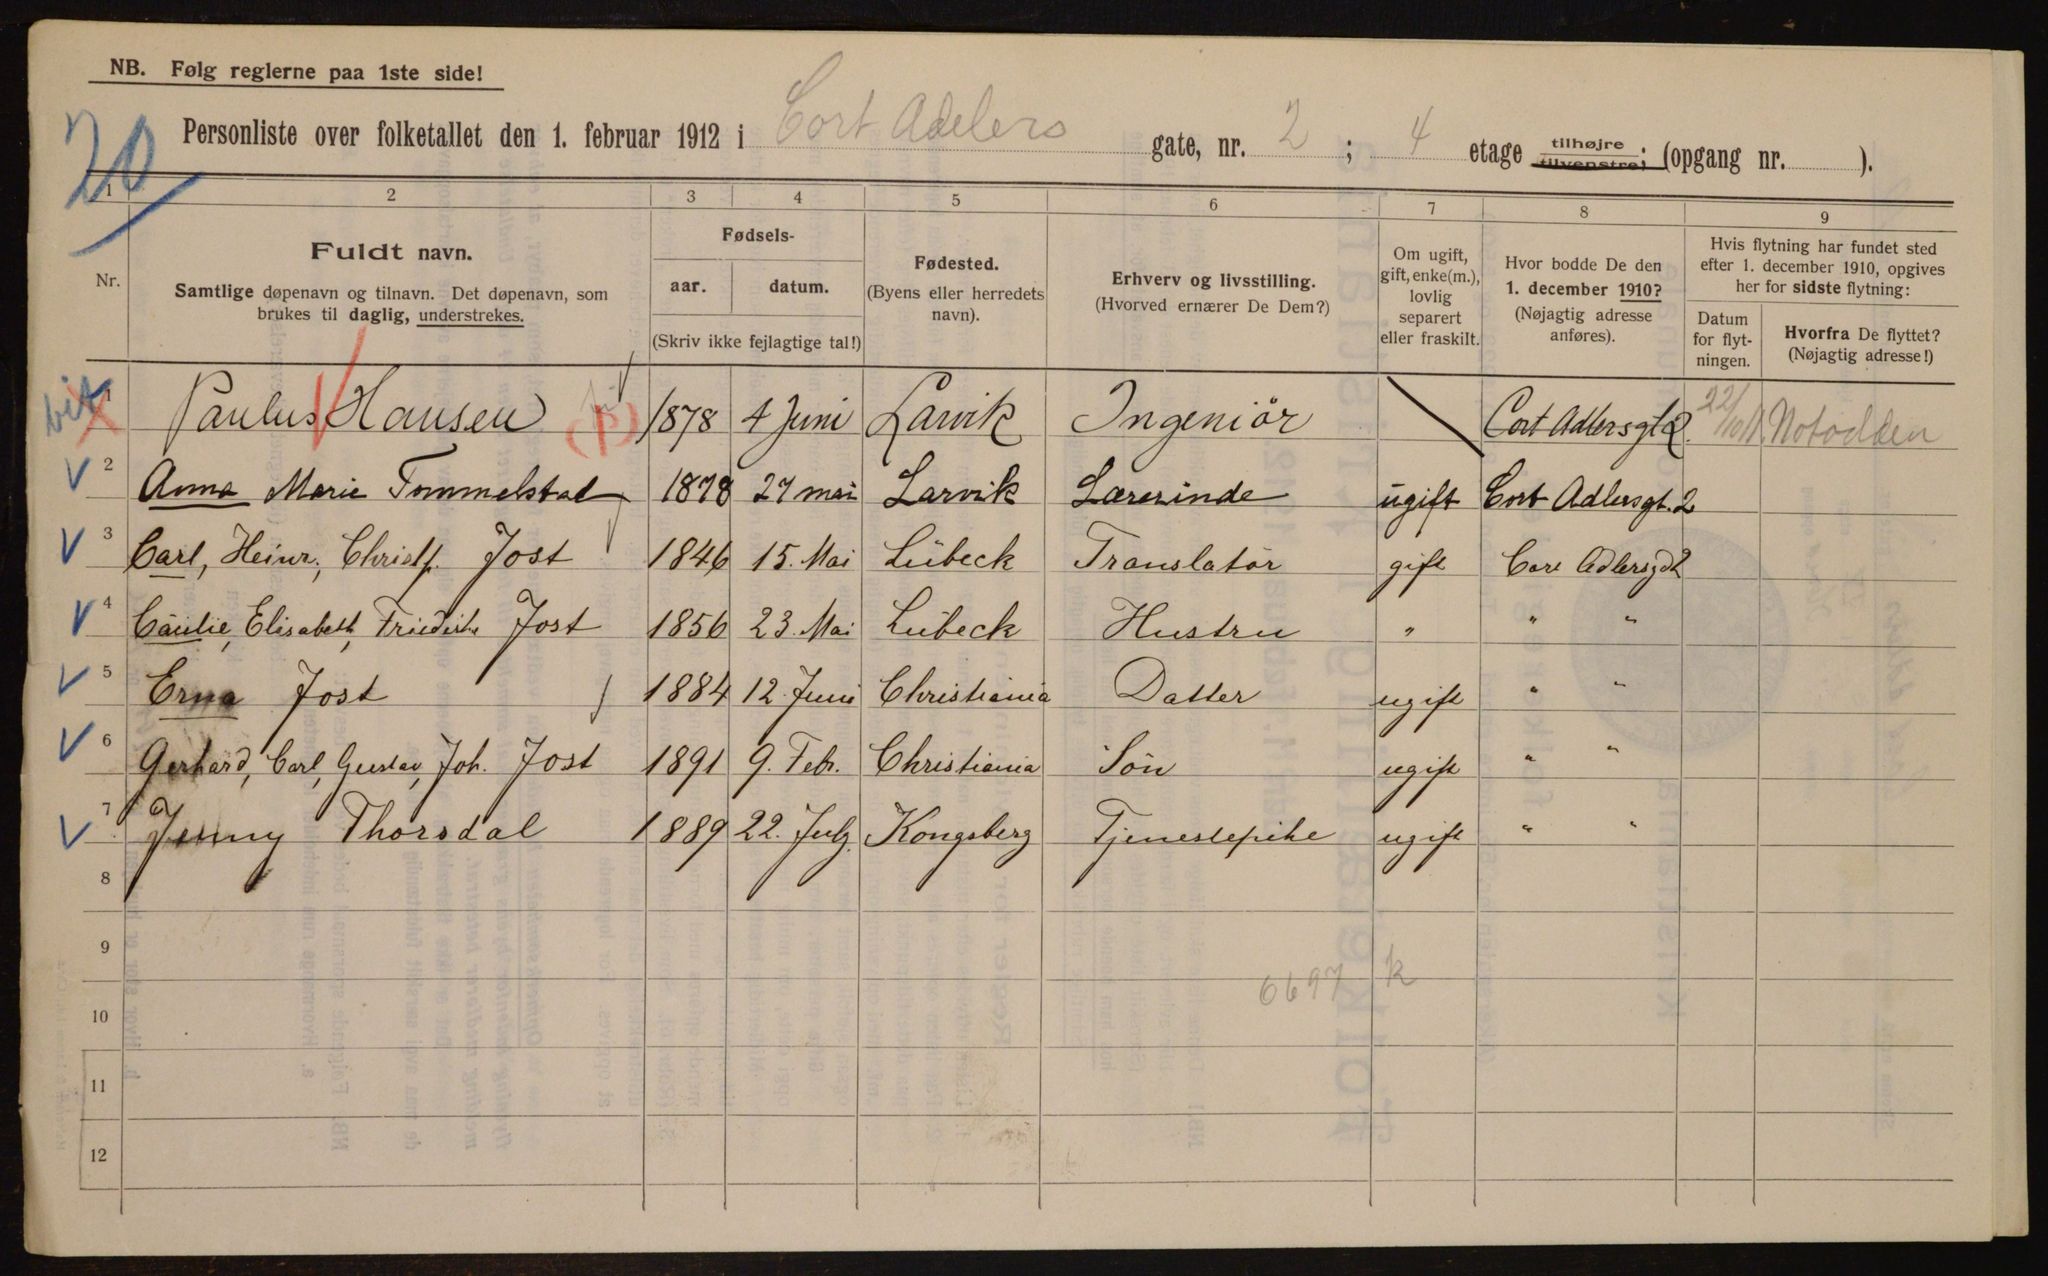 NB. Følg reglerne paa 1ste side!
20
Personliste over folketallet den 1. februar 1912 i Cort Adelers gate, nr. 2 ; 4 etage tilhøjre tilvenstre; (opgang nr. ).
1 2 3 4 5 6 7 8 9
Nr.
Fuldt navn.
Samtlige døpenavn og tilnavn. Det døpenavn, som
brukes til daglig, understrekes.
Fødsels-
aar. datum.
(Skriv ikke fejlagtige tal!)
Fødested.
(Byens eller herredets
navn).
Erhverv og livsstilling.
(Hvorved ernærer De Dem?)
Om ugift,
gift, enke(m.),
lovlig
separert
eller fraskilt.
Hvor bodde De den
1. december 1910?
(Nøjagtig adresse
anføres).
Hvis flytning har fundet sted
efter 1. december 1910, opgives
her for sidste flytning:
Datum
for flyt-
ningen.
Hvorfra De flyttet?
(Nøjagtig adresse!)
1 Paulus Hansen (p) 1878 4 Juni Larvik Ingeniör Cort Adlersgt 2. 22/10 11. Notodden
2 Anna Marie Tommelstad 1878 27 mai Larvik Lærerinde ugift Cort Adlersgt. 2
3 Carl, Heinr., Christf. Jost 1846 15. Mai Lübeck Translatör gift Cort Adlersgd 2
4 Cäcilie, Elisabeth, Friederike Jost 1856 23. Mai Lübeck Hustru " " "
5 Erna Jost 1884 12. Juni Christiania Datter ugift " "
6 Gerhard, Carl, Gustav, Joh. Jost 1891 9. Febr. Christiania Sön ugift " "
7 Jenny Thorsdal 1889 22. July Kongsberg Tjenestepike ugift " "
8
9
6697 k
10
11
12